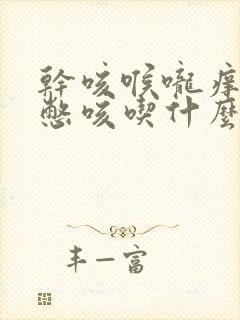 幹咳喉嚨癢
憋咳喫什麼
丰一富